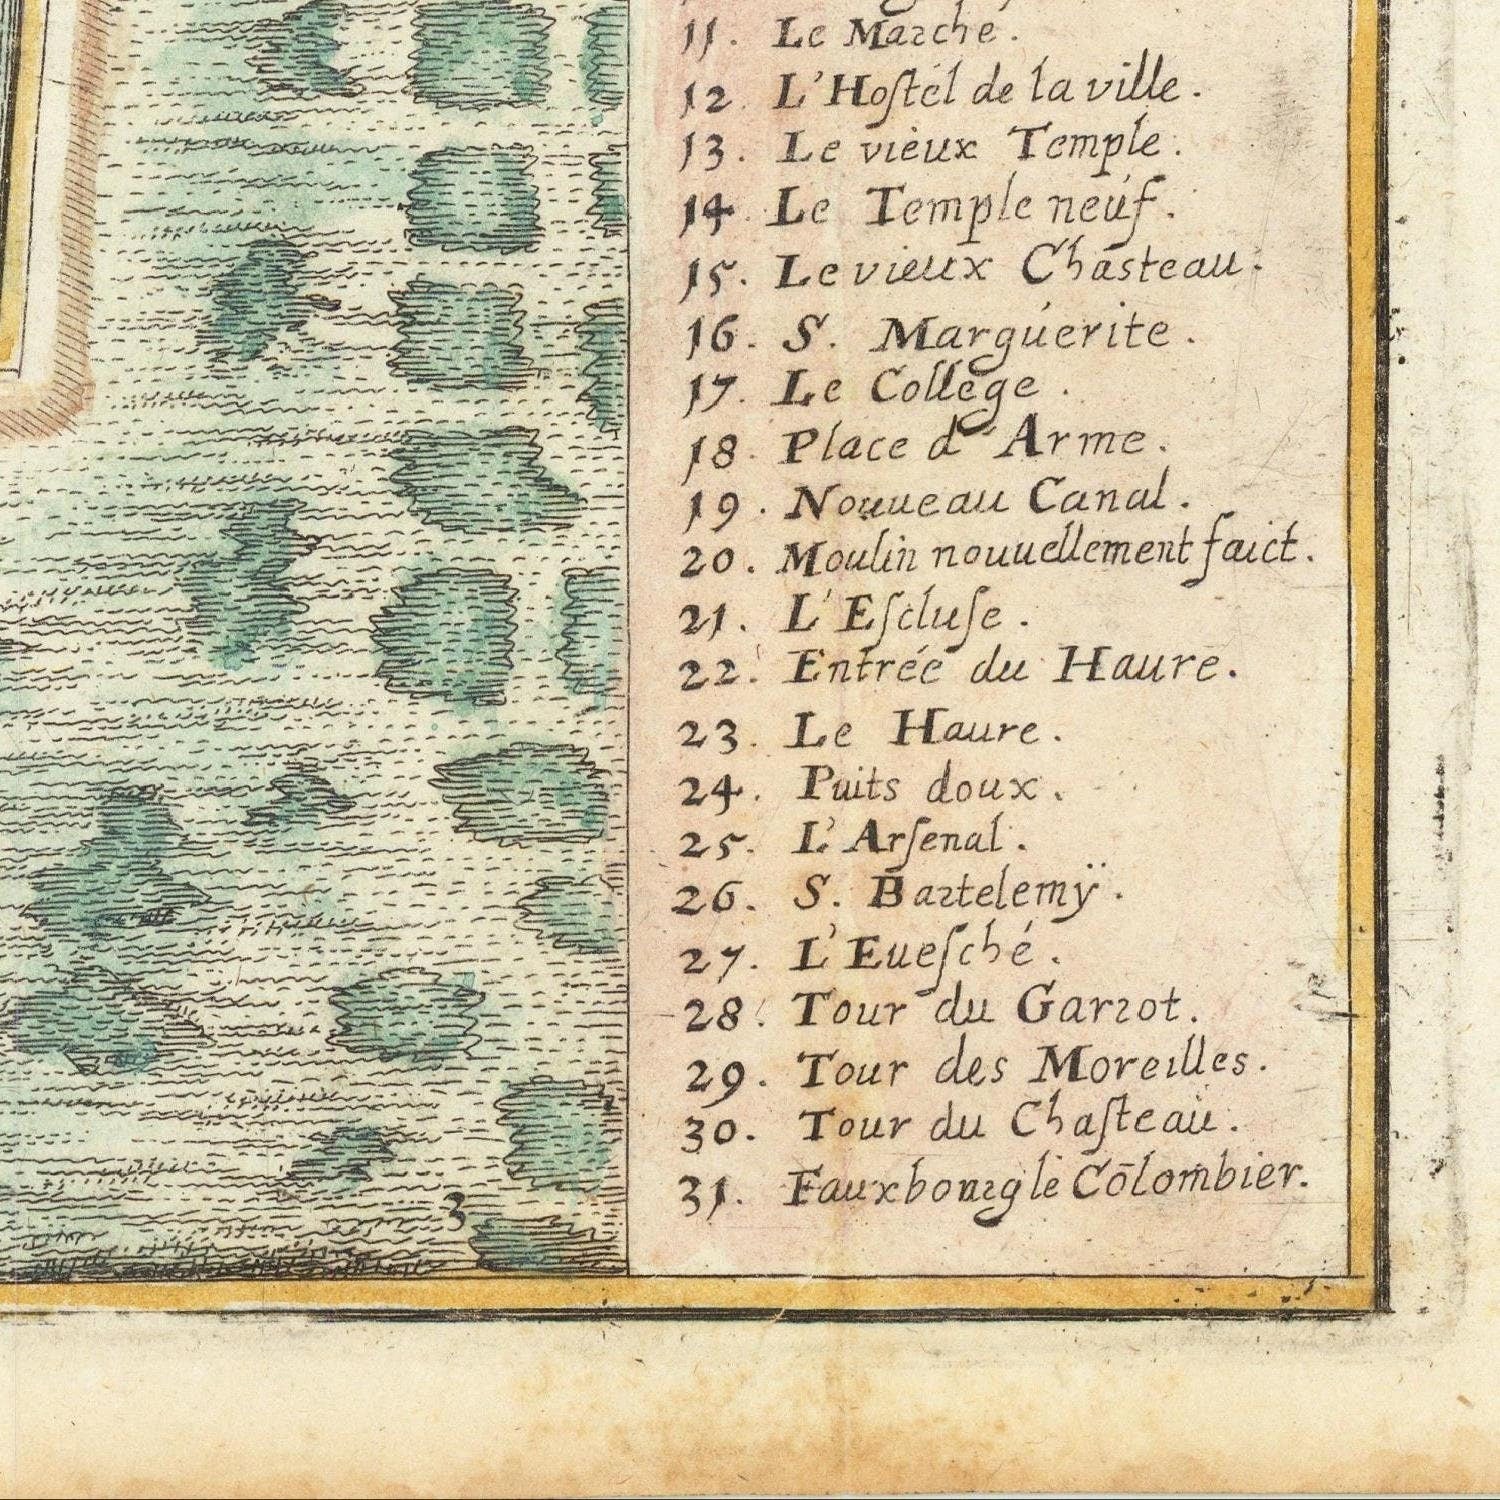 11. Le Marche.
12 L'Hoſtel de la ville.
13. Le vieux Temple.
14. Le Temple neuf.
15. Le vieux Chasteau.
16. S. Marguerite.
17. Le College.
18. Place d'Arme.
19. Nouueau Canal.
20. Moulin nouuellement faict.
21. L'Eſcluſe.
22. Entrée du Haure.
23. Le Haure.
24. Puits doux.
25. L'Arſenal.
26. S. Bartelemÿ.
27. L'Eueſché.
28. Tour du Garrot.
29. Tour des Moreilles.
30. Tour du Chaſteau.
31. Fauxbourg le Cōlombier.
3